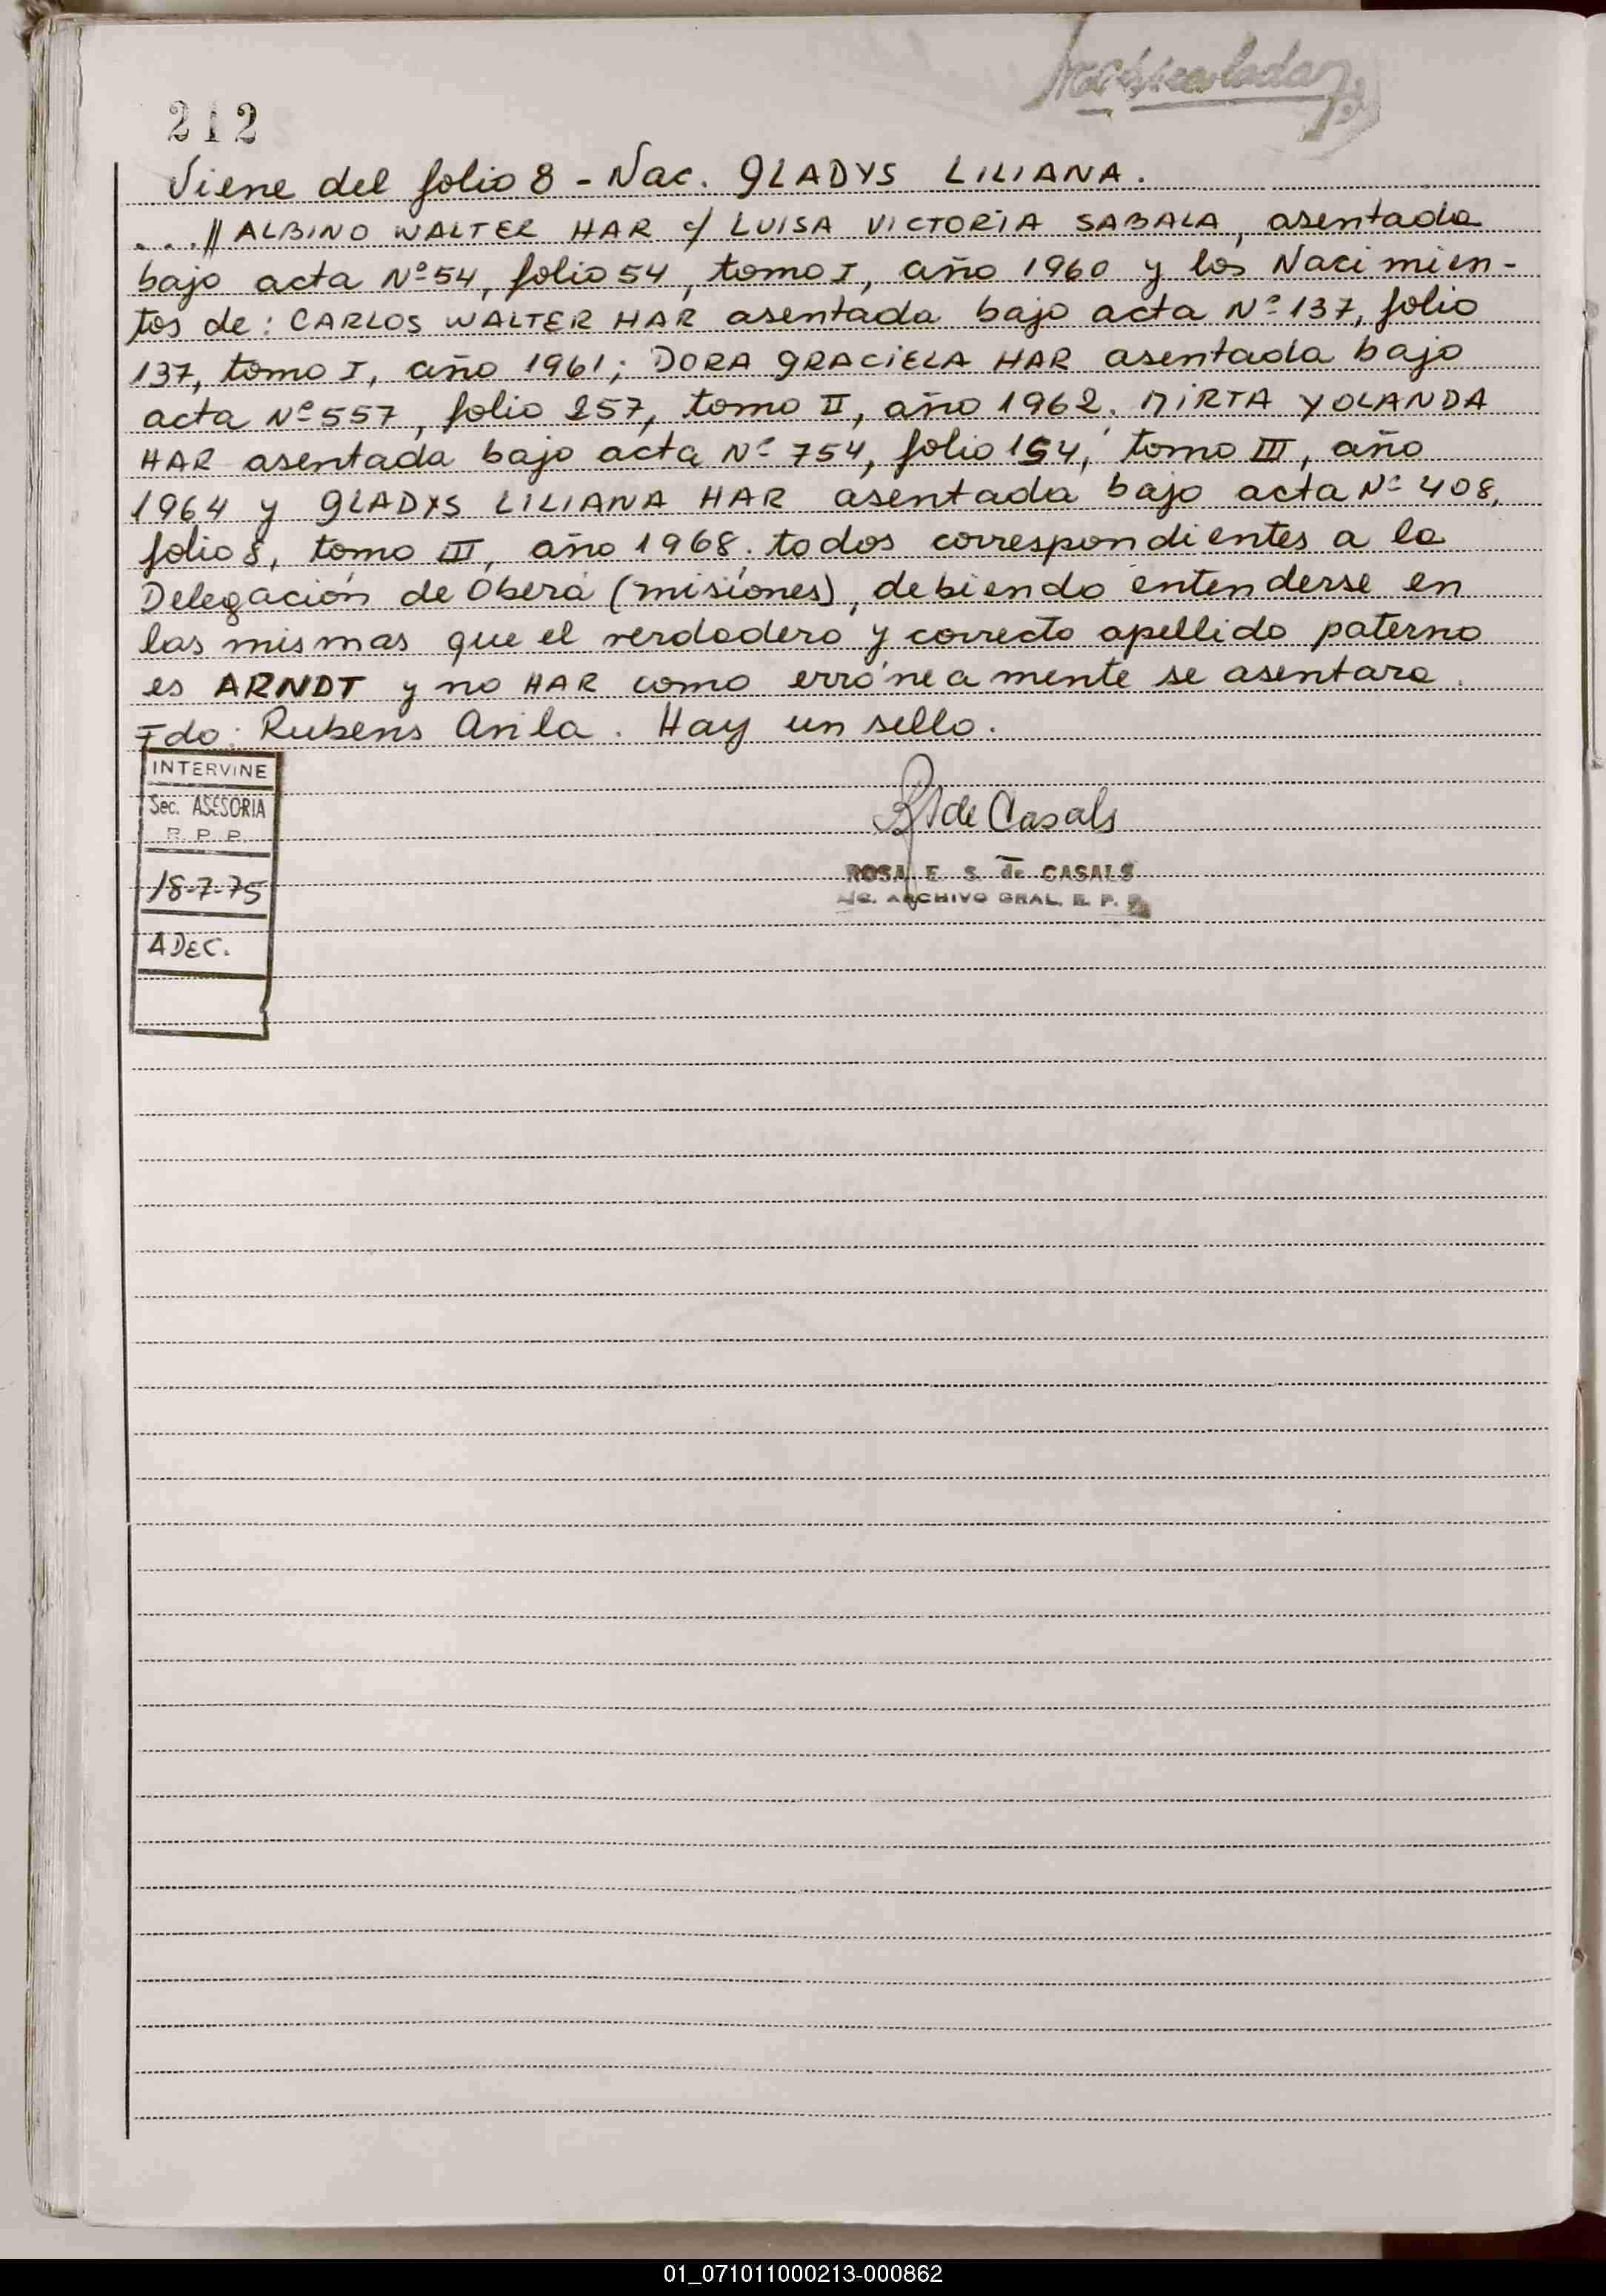 212
Viene del folio 8 - Nac. GLADYS LILIANA.
....// ALBINO WALTER HAR c/ LUISA VICTORIA SABALA, asentada
bajo acta Nº 54, folio 54, tomo I, año 1960 y los Nacimien-
tos de: CARLOS WALTER HAR asentada bajo acta Nº 137, folio
137, tomo I, año 1961; DORA GRACIELA HAR asentada bajo
acta Nº 557, folio 257, tomo II, año 1962; MIRTA YOLANDA
HAR asentada bajo acta Nº 754, folio 154, tomo III, año
1964 y GLADYS LILIANA HAR asentada bajo acta Nº 408,
folio 8, tomo III, año 1968; todos correspondientes a la
Delegación de Oberá (misiones), debiendo entenderse en
las mismas que el verdadero y correcto apellido paterno
es ARNDT y no HAR como erróneamente se asentara.
Fdo: Rubens Avila. Hay un sello.
INTERVINE
Sec. ASESORIA
R. P. P.
18-7-75
ADEC.
de Casals
ROSA E. S. de CASALS
ARCHIVO GRAL. R. P. P.
01_071011000213-000862